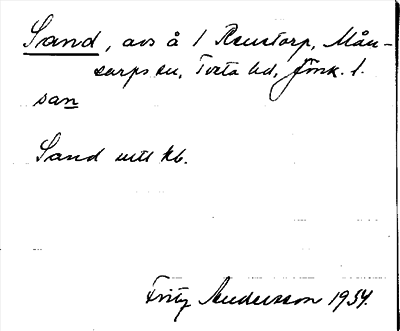 Sand, avs å 1 Renstorp, Mån-
sarps sn, Tveta hd, Jönk. l.
san
Sand utt kb.
Fritz Andersson 1934.